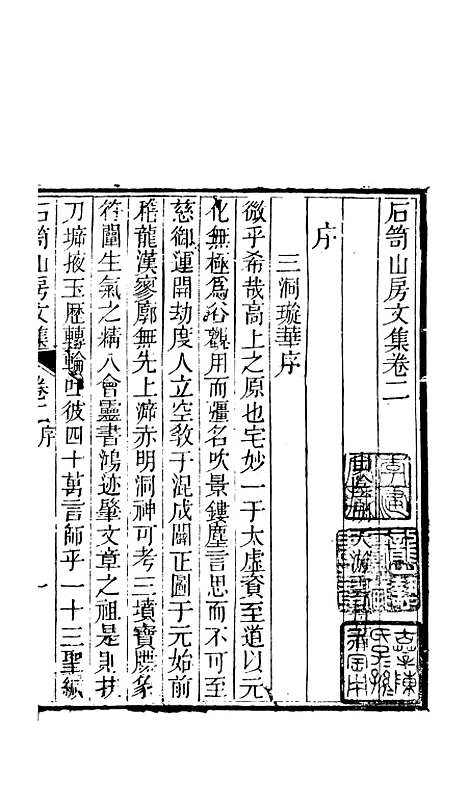 石笥山房文集卷二
序
三洞璇華序
微乎希哉高上之原也宅妙一于太虛資至道以元
化無極爲谷觀用而彊名吹景鏤塵言思而不可至
慈御運開劫度人立空敎于混成闢正圖于元始前
稽龍漢寥廓無先上溯赤明洞神可考三墳寶牒篆
符闡生氣之精八會靈書鴻迹肇文章之祖是則扶
刀擲掖玉歷轉輪吐彼四十萬言師乎一十三聖
石笥山房文集 卷二序 一